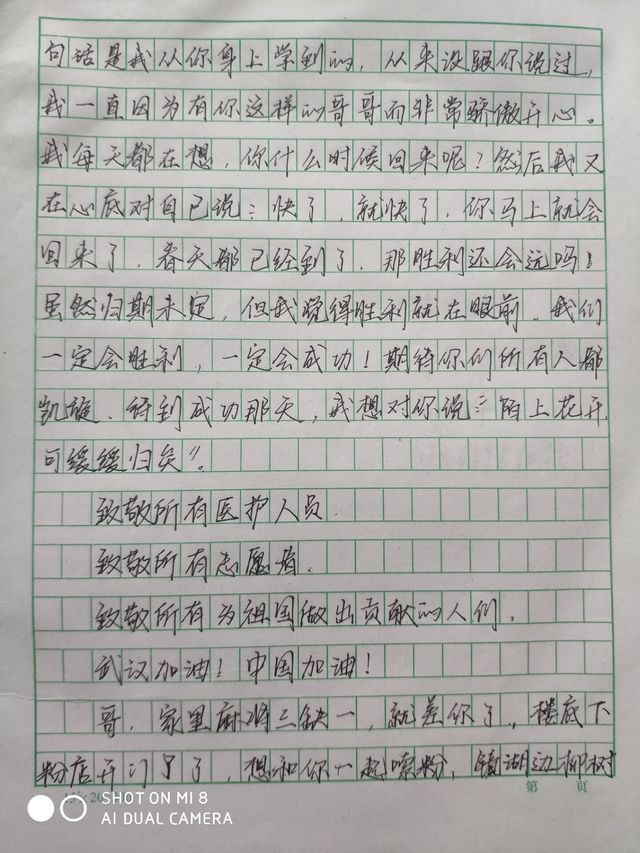 句话是我从你身上学到的，从来没跟你说过，
我一直因为有你这样的哥哥而非常骄傲开心。
我每天都在想，你什么时候回来呢？然后我又
在心底对自己说：快了，就快了，你马上就会
回来了，春天都已经到了，那胜利还会远吗！
虽然归期未定，但我觉得胜利就在眼前，我们
一定会胜利，一定会成功！期待你们所有人都
凯旋、待到成功那天，我想对你说：“陌上花开，
可缓缓归矣”。
致敬所有医护人员
致敬所有志愿者，
致敬所有为祖国做出贡献的人们，
武汉加油！中国加油！
哥，家里麻将三缺一，就差你了，楼底下
粉店开门了，想和你一起嗦粉，镜湖边柳树
20
第 页
SHOT ON MI 8
AI DUAL CAMERA